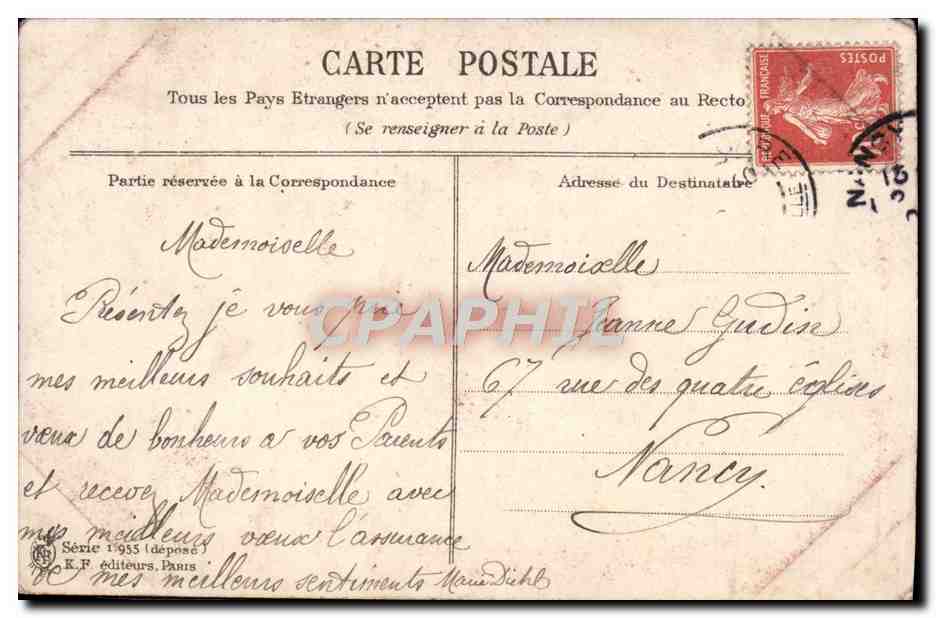 CARTE POSTALE
Tous les Pays Etrangers n'acceptent pas la Correspondance au Recto
(Se renseigner à la Poste)
POSTES
FRANÇAISE
Partie réservée à la Correspondance
Mademoiselle
Présentez je vous prie
mes meilleurs souhaits et
vœux de bonheurs a vos Parents
et recevez Mademoiselle avec
mes meilleurs vœux l'assurance
de mes meilleurs sentiments Marie Diehl
Série 1.955 (déposé)
K.F. éditeurs, PARIS
Adresse du Destinataire
Mademoiselle
Jeanne Gudin
67 rue des quatre églises
Nancy.
CPAPHIL